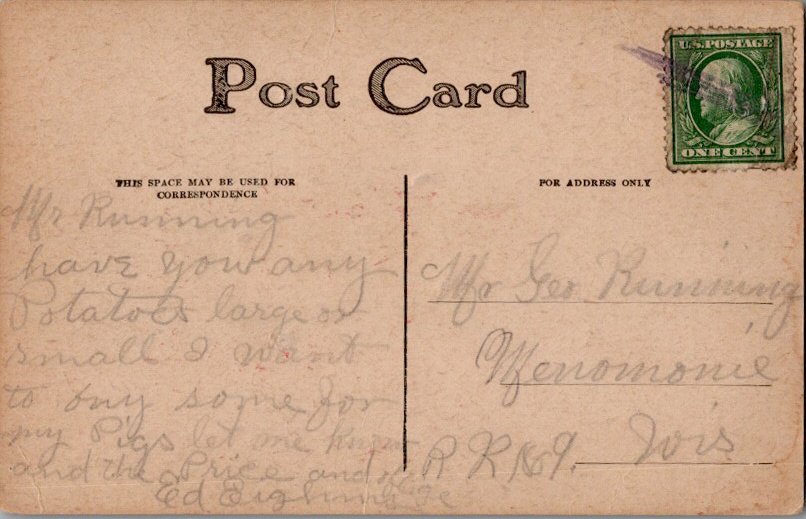 Post Card
U.S. POSTAGE
ONE CENT
THIS SPACE MAY BE USED FOR
CORRESPONDENCE
FOR ADDRESS ONLY
Mr Running
have you any
Potatoes large or
small I want
to buy some for
my Pigs let me know
and the Price and
Ed
Mr Geo Running
Menomonie
R R No 9. Wis